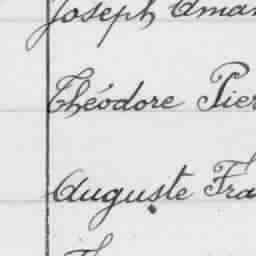 Joseph Aman
Théodore Pier
Auguste Fra